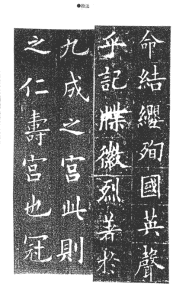 命結纓殉國英聲
乎記牒徽烈著於
九成之宮此則
之仁壽宮也冠